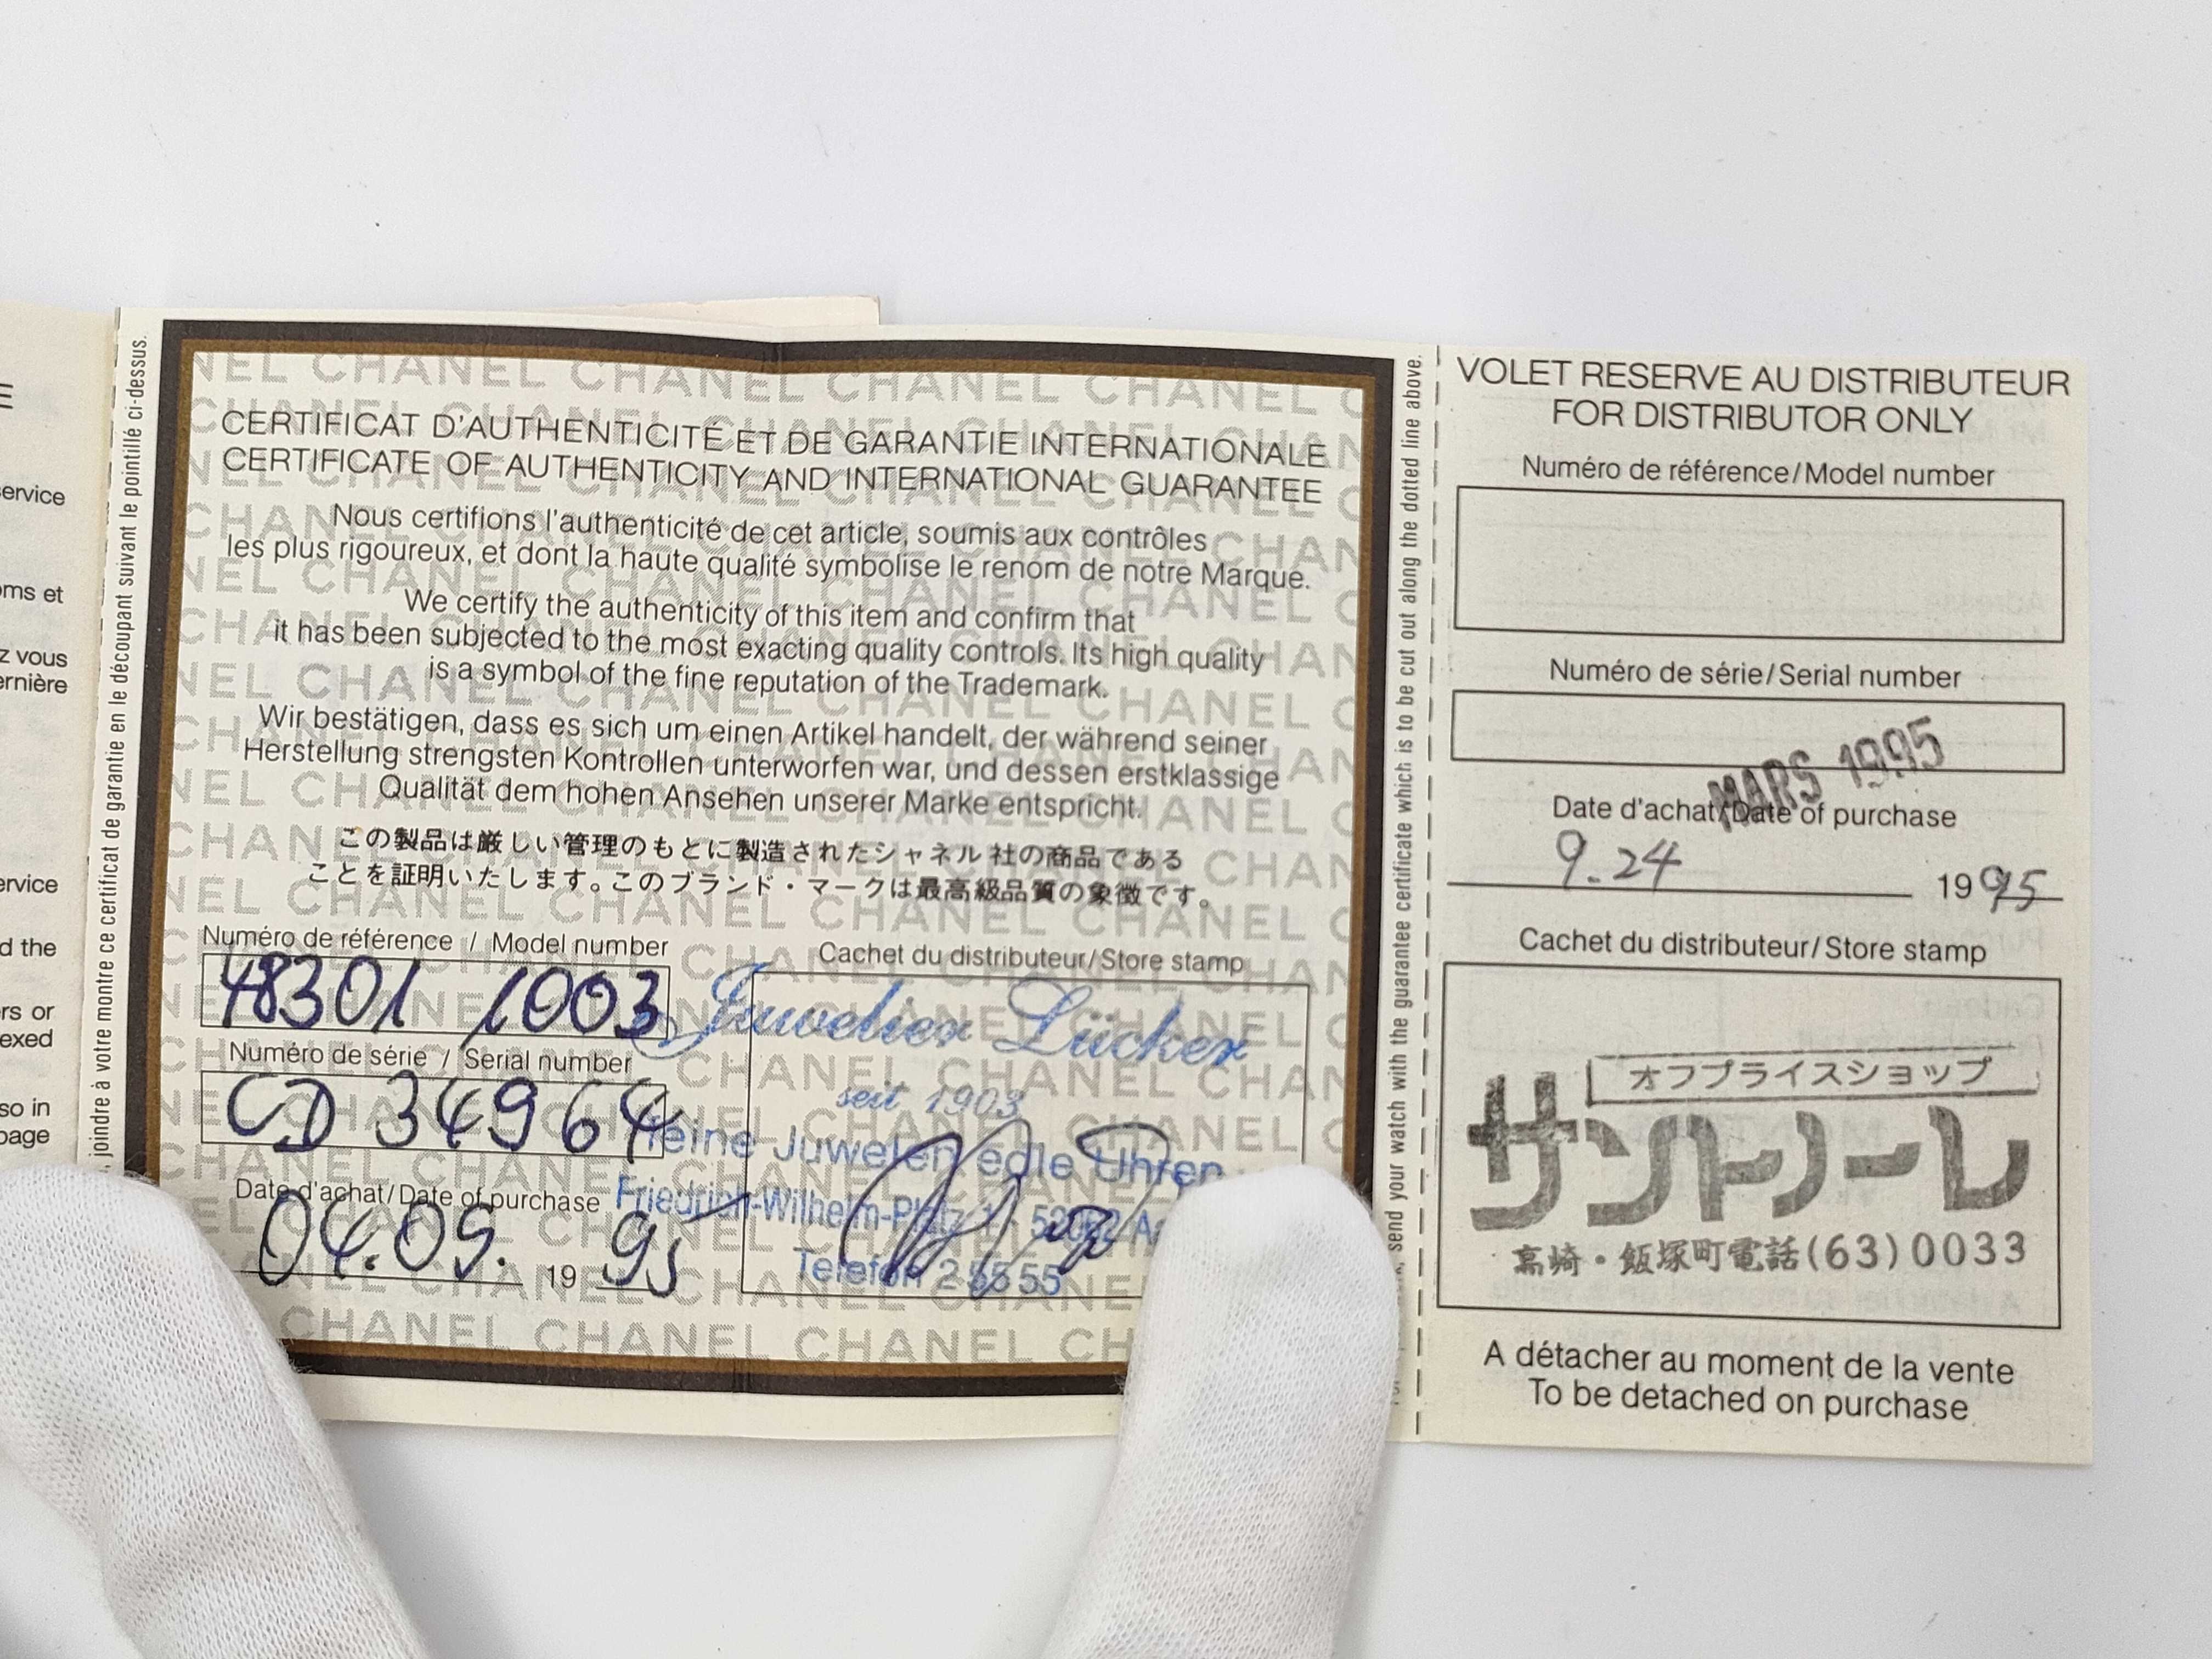 E
service
oms et
z vous
ernière
ervice
d the
rs or
exed
so in
page
joindre à votre montre ce certificat de garantie en le découpant suivant le pointillé ci-dessus.
CERTIFICAT D'AUTHENTICITÉ ET DE GARANTIE INTERNATIONALE
CERTIFICATE OF AUTHENTICITY AND INTERNATIONAL GUARANTEE
Nous certifions l'authenticité de cet article, soumis aux contrôles
les plus rigoureux, et dont la haute qualité symbolise le renom de notre Marque.
We certify the authenticity of this item and confirm that
it has been subjected to the most exacting quality controls. Its high quality
is a symbol of the fine reputation of the Trademark.
Wir bestätigen, dass es sich um einen Artikel handelt, der während seiner
Herstellung strengsten Kontrollen unterworfen war, und dessen erstklassige
Qualität dem hohen Ansehen unserer Marke entspricht.
この製品は厳しい管理のもとに製造されたシャネル社の商品である
ことを証明いたします。このブランド・マークは最高級品質の象徴です。
Numéro de référence / Model number
48301 1003
Numéro de série / Serial number
CD 34964
Date d'achat/Date of purchase
04.09. 19 95
Cachet du distributeur/Store stamp
Juwelier Lücker
seit 1903
feine Juwelen edle Uhren
Friedrich-Wilhelm-Platz 1 - 52062 A
Telefon 2 55 55
send your watch with the guarantee certificate which is to be cut out along the dotted line above.
VOLET RESERVE AU DISTRIBUTEUR
FOR DISTRIBUTOR ONLY
Numéro de référence/Model number
Numéro de série/Serial number
MARS 1995
Date d'achat/Date of purchase
9.24 1995
Cachet du distributeur/Store stamp
オフプライスショップ
サントノーレ
高崎・飯塚町電話(63)0033
A détacher au moment de la vente
To be detached on purchase